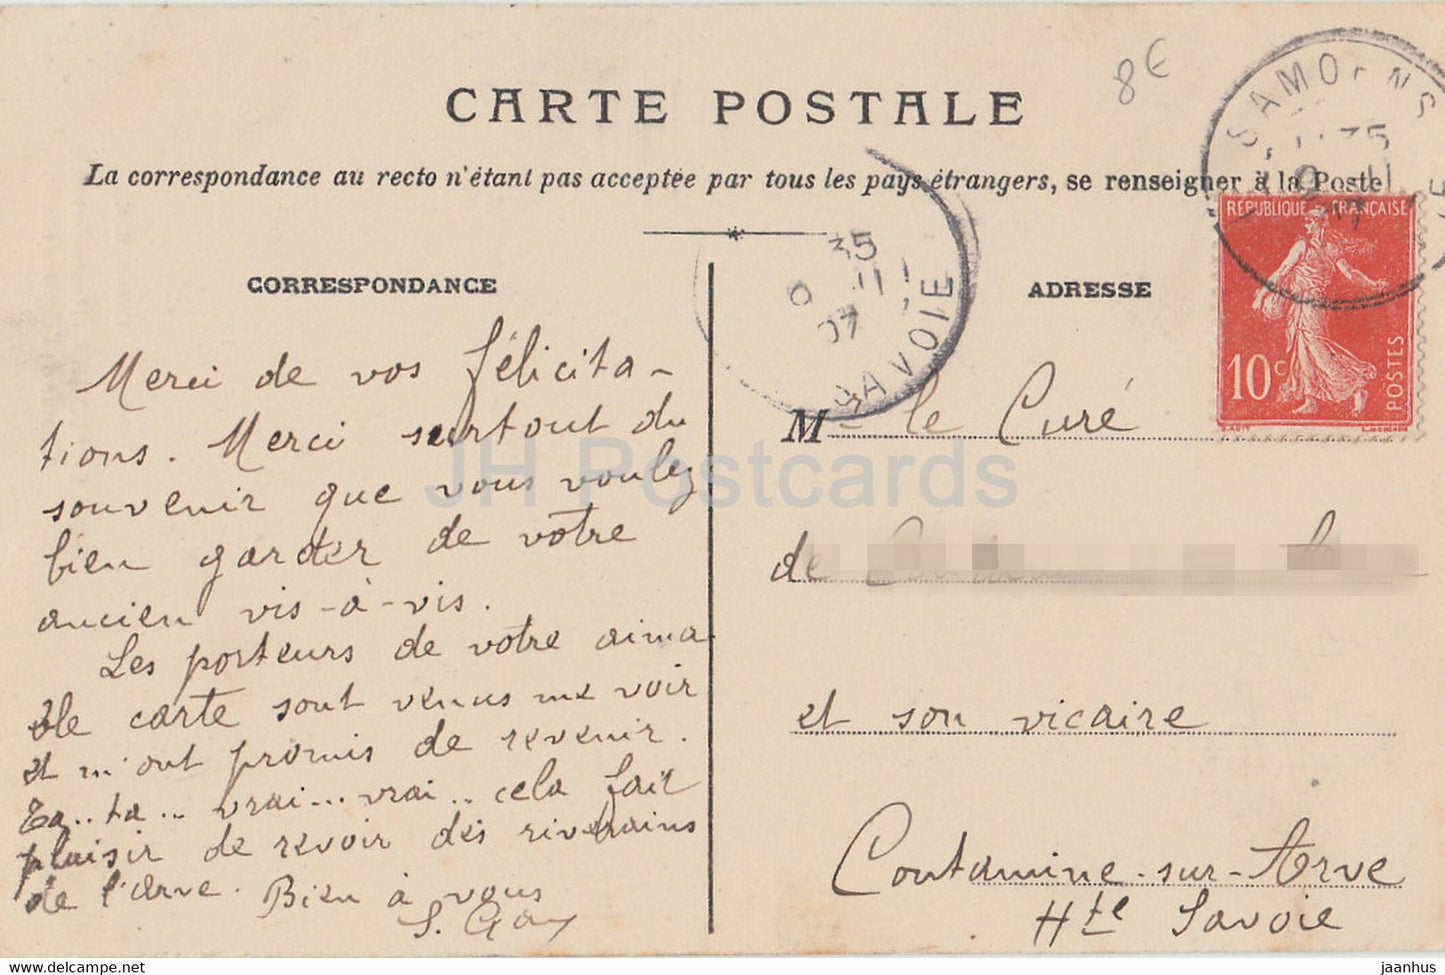 CARTE POSTALE
8€
La correspondance au recto n'étant pas acceptée par tous les pays étrangers, se renseigner à la Poste
CORRESPONDANCE
Merci de vos félicita-
tions. Merci surtout du
souvenir que vous voulez
bien garder de votre
ancien vis-à-vis.
Les porteurs de votre aima
ble carte sont venus me voir
et m'ont promis de revenir.
Ta..ta.. vrai... vrai.. cela fait
plaisir de revoir des riverains
de l'Arve. Bien à vous
S. Gay
35
11
07
SAVOIE
SAMOËNS
35
REPUBLIQUE FRANÇAISE
10c
POSTES
ADRESSE
M le Curé
de
et son vicaire
Contamine-sur-Arve
Hte Savoie
JH Postcards
hip-stamp.com
jaanhus